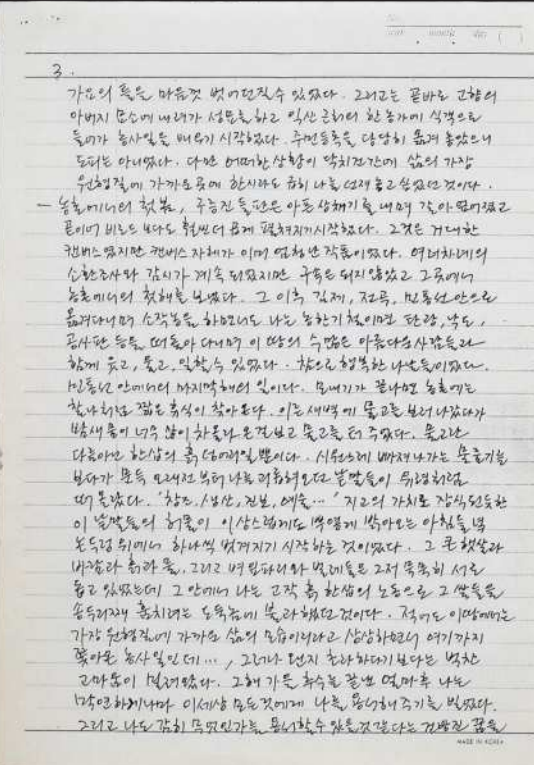 3.
가요의 틀을 마음껏 벗어던질수 있었다. 그리고는 곧바로 고향의
아버지 묘소에 내려가 성묘를 하고 익산 근처의 한 농가에 식객으로
들어가 농사일을 배우기 시작했다. 주민등록을 당당히 옮겨 놓았으니
도피는 아니었다. 다만 어떠한 상황이 닥치건간에 삶의 가장
원형질에 가까운 곳에 한시라도 급히 나를 선재 놓고 싶었던 것이다.
— 농촌에서의 첫봄, 구릉진 들판은 아픈 상채기를 내며 갈아 엎어졌고
곧이어 비로드 보다도 훨씬 더 곱게 펼쳐지기 시작했다. 그것은 거대한
캔버스였지만 캔버스 자체가 이미 엄청난 작품이었다. 여러차례의
소환조사와 감시가 계속 되었지만 구속은 되지 않았고 그곳에서
농촌에서의 첫해를 보냈다. 그 이후 김제, 전곡, 민통선 안으로
옮겨다니며 소작농을 하면서도 나는 농한기 철이면 탄광, 낙도,
공사판 등을 떠돌아 다니며 이 땅의 수많은 아름다운 사람들과
함께 웃고, 울고, 일할 수 있었다. 참으로 행복한 나날들이었다.
민통선 안에서의 마지막해의 일이다. 모내기가 끝나면 농촌에는
찰나처럼 짧은 휴식이 찾아온다. 이른 새벽에 물고를 보러 나갔다가
밤새 물이 너무 많이 차올라 온걸 보고 물고를 터 주었다. 물고란
다름아닌 한삽의 흙 덩어리일 뿐이다. 시원스레 빠져나가는 물줄기를
보다가 문득 오래전부터 나를 괴롭혀오던 낱말들이 유령처럼
떠올랐다. '창조, 생산, 진보, 예술 ...' 지고의 가치로 장식된듯한
이 낱말들의 허물이 이상스럽게도 뿌옇게 밝아오는 아침 들녘
논두렁 위에서 하나씩 벗겨지기 시작하는 것이었다. 그 큰 햇살과
바람과 흙과 물, 그리고 벼 잎파리와 벌레들은 그저 묵묵히 서로
돕고 있었는데 그 안에서 나는 고작 흙 한삽의 노동으로 그 쌀들을
송두리째 훔치려는 도둑놈에 불과했던 것이다. 적어도 이땅에서는
가장 원형질에 가까운 삶의 모습이리라고 상상하면서 여기까지
쫓아온 농사일인데..., 그러나 왠지 초라하다기보다는 벅찬
고마움이 밀려왔다. 그해 가을 추수를 끝낸 얼마후 나는
막연하게나마 이세상 모든것에게 나를 용서해주기를 빌었다.
그리고 나도 감히 무엇인가를 용서할 수 있을것 같다는 건방진 꿈을
MADE IN KOREA